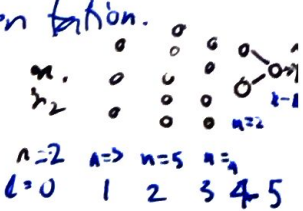 n tation.
x.
x₂
n=2
n=2 n=3 n=5 n=4
l=0 1 2 3 4 5